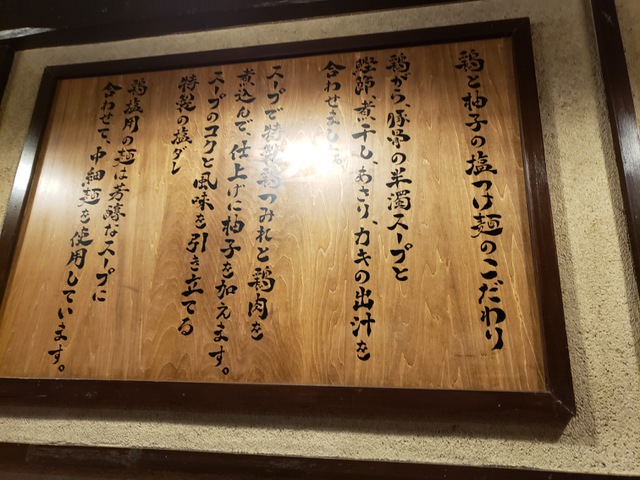 鶏と柚子の塩つけ麺のこだわり
鶏がら、豚骨の半濁スープと
鰹節、煮干し、あさり、カキの出汁を
合わせました。
スープで特製鶏つみれと鶏肉を
煮込んで、仕上げに柚子を加えます。
スープのコクと風味を引き立てる
特製の塩ダレ
鶏塩用の麺は芳醇なスープに
合わせて、中細麺を使用しています。